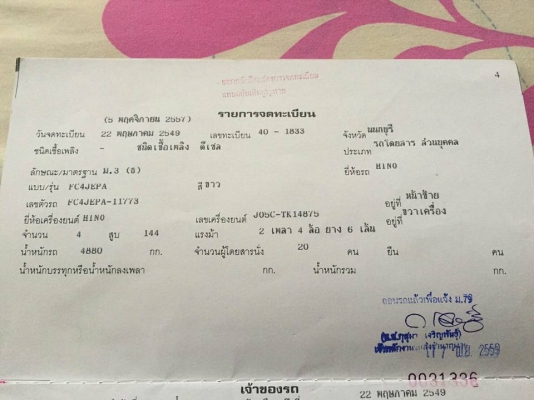 4
(5 พฤศจิกายน 2557)
รายการจดทะเบียน
วันจดทะเบียน 22 พฤษภาคม 2549 เลขทะเบียน 40 - 1833 จังหวัด นนทบุรี
ชนิดเชื้อเพลิง - ชนิดเชื้อเพลิง ดีเซล ประเภท รถโดยสาร ส่วนบุคคล
ลักษณะ/มาตรฐาน ม.3 (ธ) ยี่ห้อรถ HINO
แบบ/รุ่น FC4JEPA สี ขาว
เลขตัวรถ FC4JEPA-11773 อยู่ที่ หน้าซ้าย
ยี่ห้อเครื่องยนต์ HINO เลขเครื่องยนต์ J05C-TK14875 อยู่ที่ ขวาเครื่อง
จำนวน 4 สูบ 144 แรงม้า 2 เพลา 4 ล้อ ยาง 6 เส้น
น้ำหนักรถ 4880 กก. จำนวนผู้โดยสารนั่ง 20 คน ยืน คน
น้ำหนักบรรทุกหรือน้ำหนักลงเพลา กก. น้ำหนักรวม กก.
ถอนรถแล้วเพื่อแจ้ง ม.79
0031336
เจ้าของรถ
22 พฤษภาคม 2549